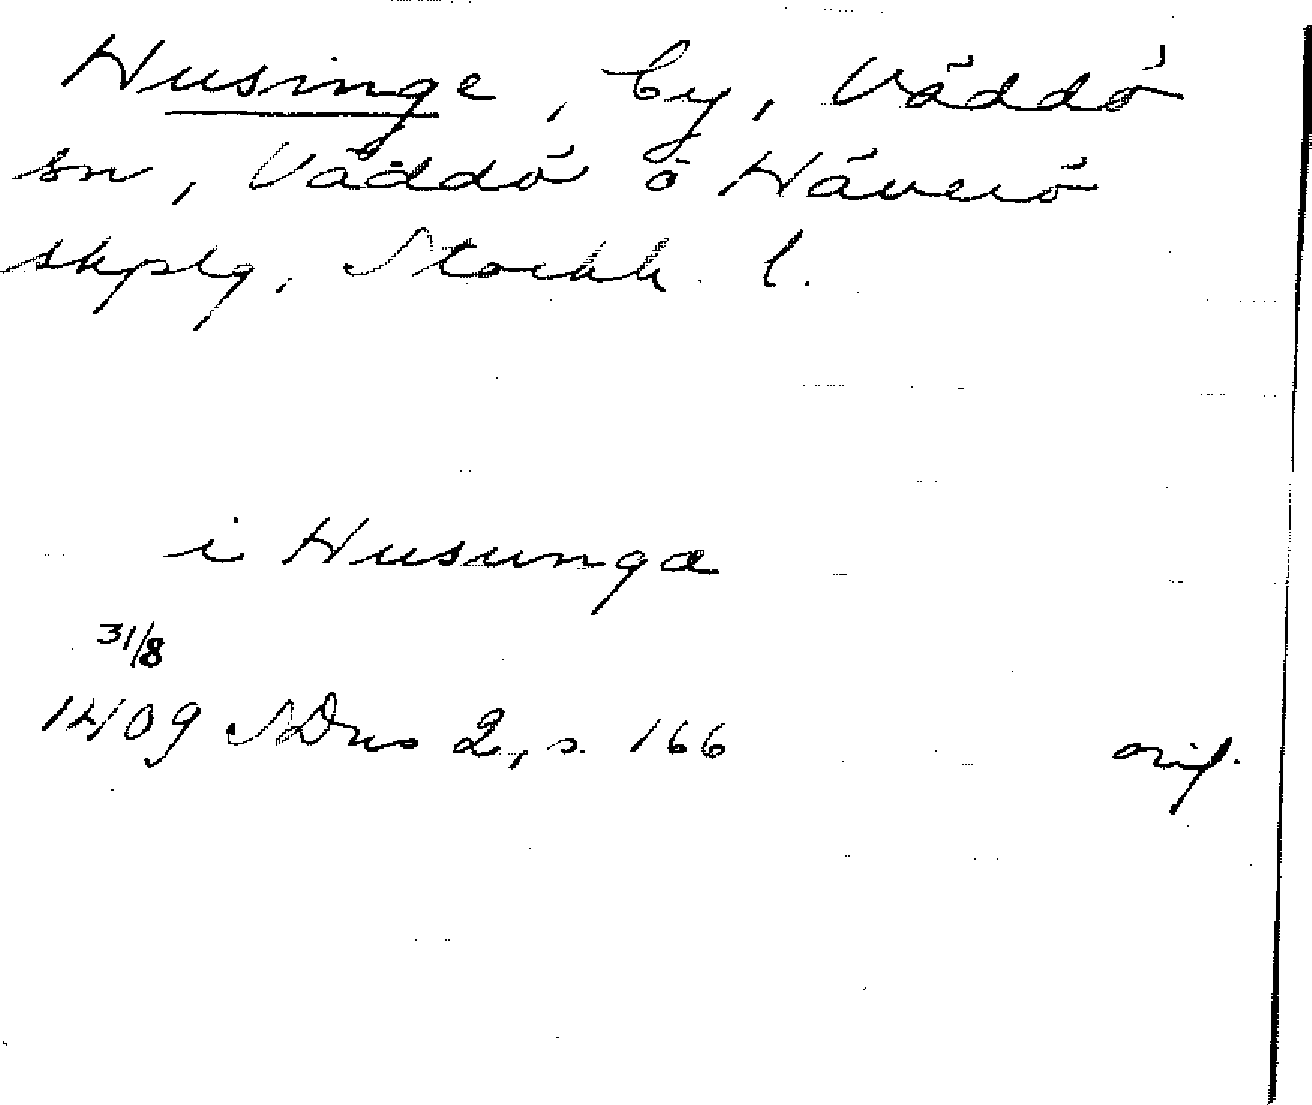 Husinge, by, Väddö
sn, Väddö o Häverö
skplg, Stockh. l.
i Husunga
31/8
1409 SDns 2, s. 166 orig.